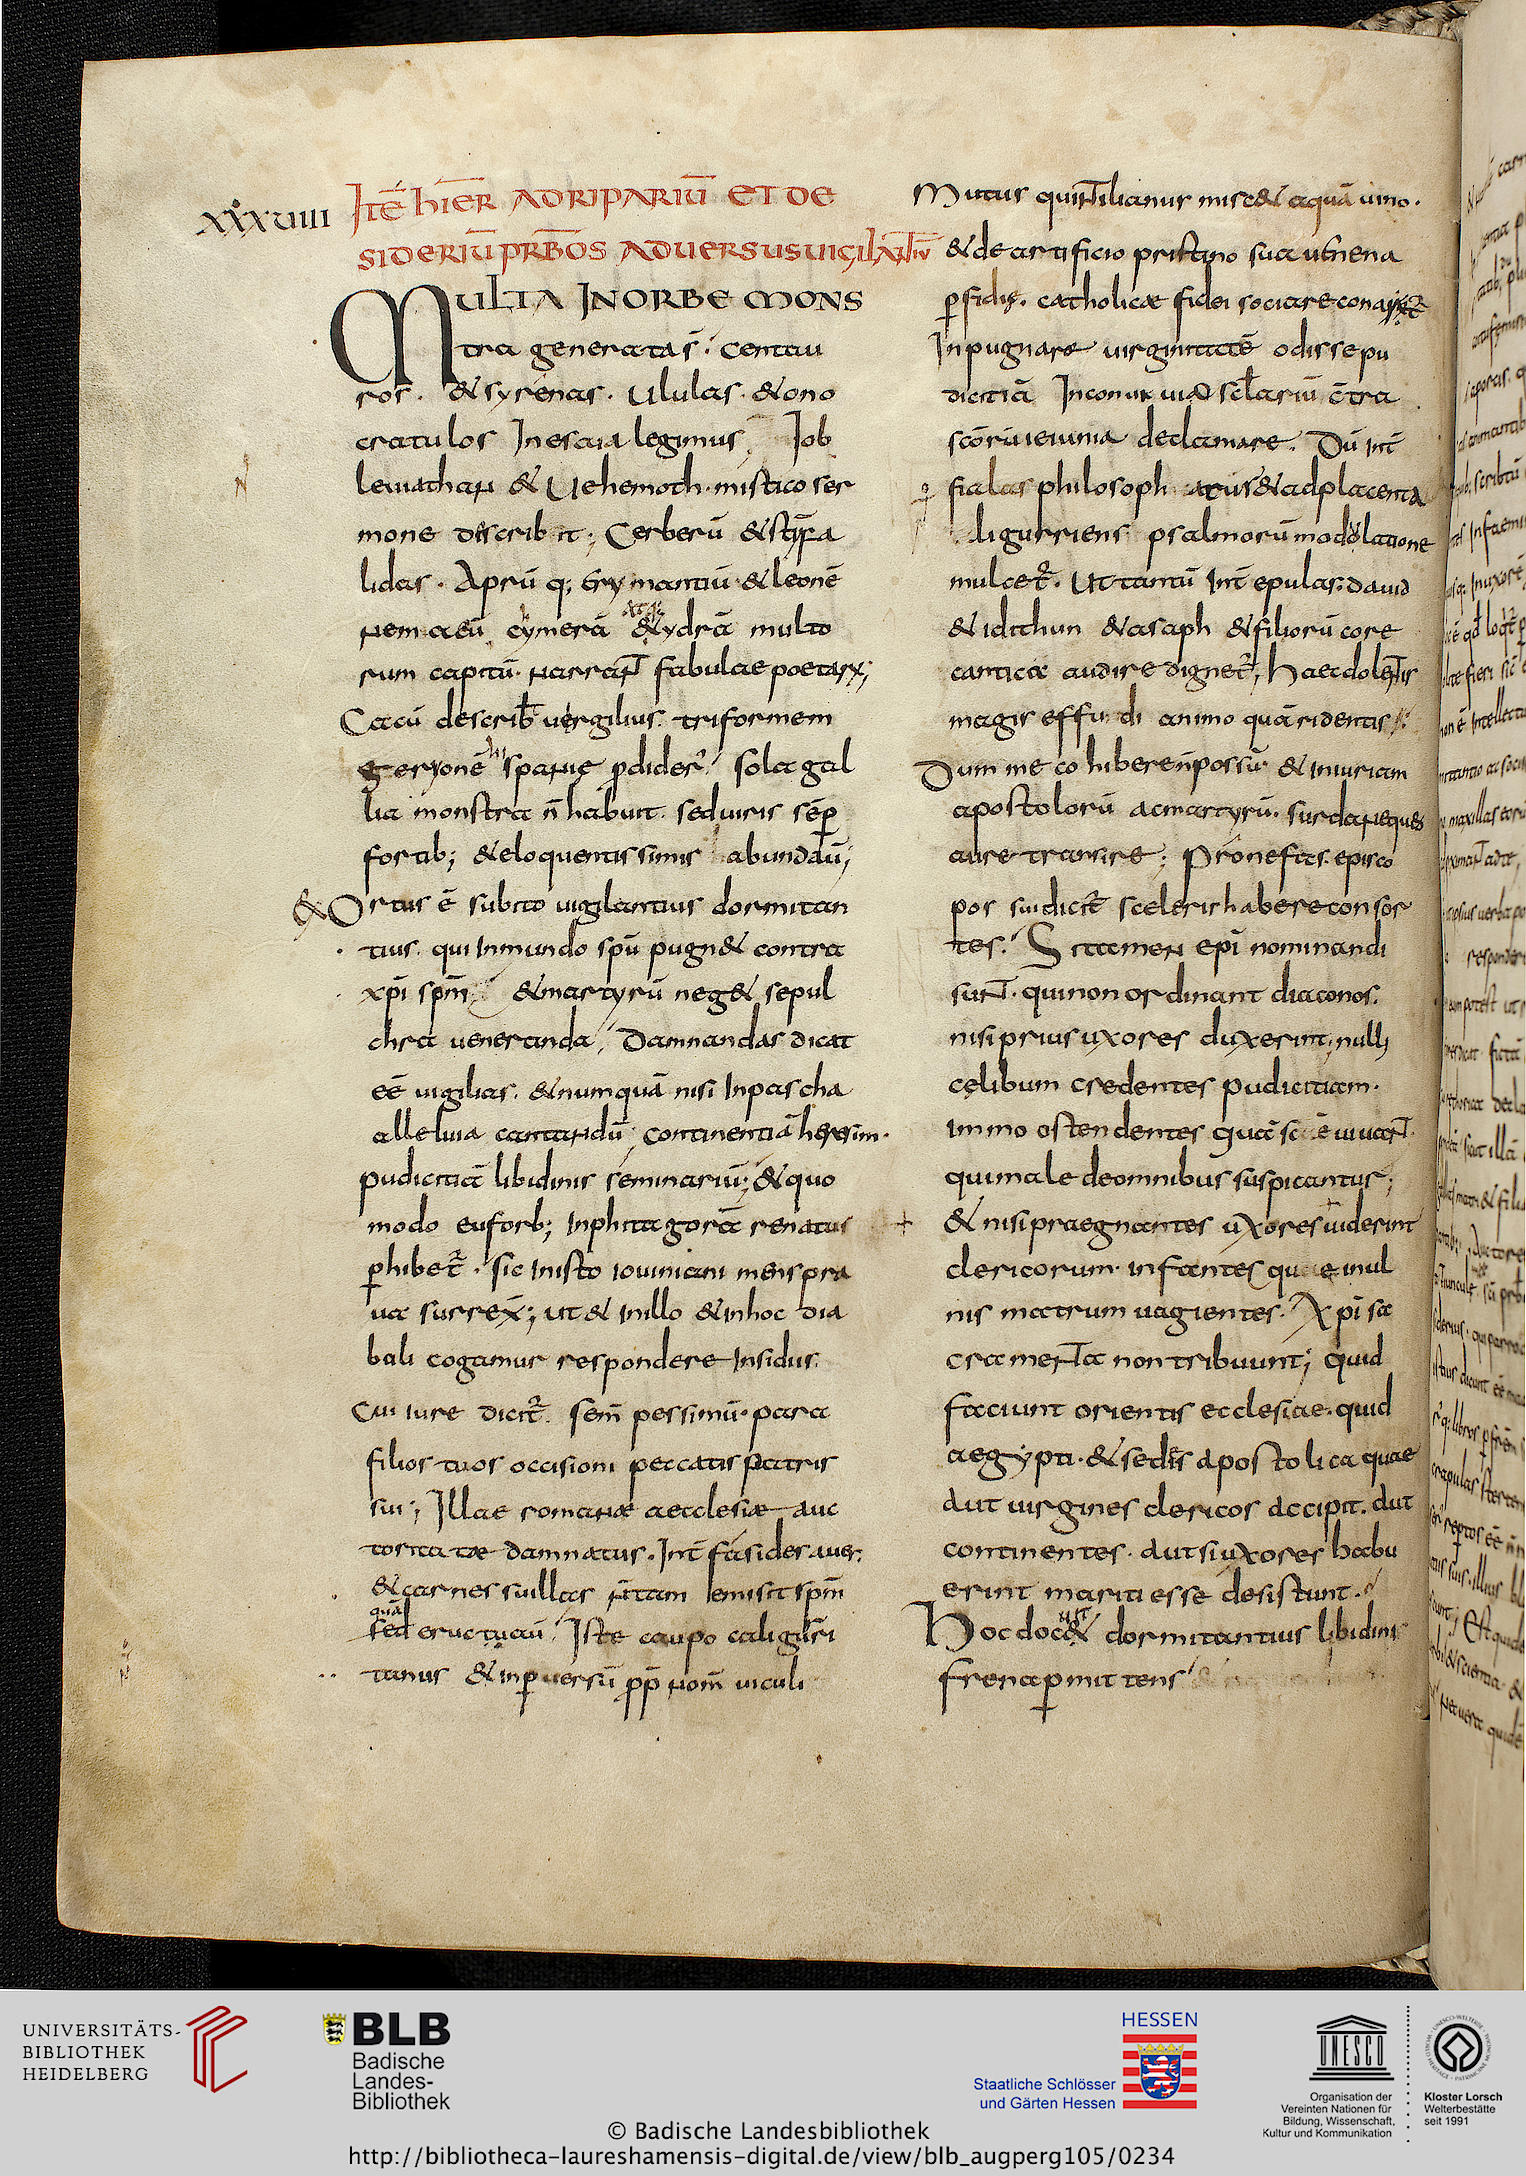 XXXVIIII
Itē hiēr ad ripariū et de
sideriū prb̄os adversus vigilantiū
Multa in orbe mons
tra generata s̄. centau
ros. & syrenas. ululas. & ono
cratulos In esaia legimus Iob
leuiathan & Vehemoth. mistico ser
mone describit; Cerberū & stȳfa
lidas. Aprū q; Erymantiū & leonē
nemaeū cymerā atq; & ydrā multo
rum capitū. narrant fabulae poetarx;
Cacū describt̄ vergilius. triformem
geryonē spanię ꝑdider̄. sola gal
lia monstra n̄ habuit. sed uiris sēp
fortib; & eloquentissimis abundau̅;
& Ortus ē subito uigilantius dormitan
tius. qui Inmundo spū pugn& contra
xp̄i spm̄ & martyrū neg& sepul
chra ueneranda, Damnandas dicat
eē uigilias. & numquā nisi In pascha
alleluia cantandū; continentiā heresim.
pudicitiā libidinis seminariū; & quo
modo euforb; In phitagorā renatus
ꝑhibet̄. sic In isto iouiniani mens pra
ua surrex̄; ut & in illo & in hoc dia
boli cogamur respondere Insidiis.
Cui iure dicit̄. sem̄ pessimū. para
filios tuos occisioni peccatis patris
sui; Illae romanae aecclesiae auc
toritatae damnatus. Int̄ fasides aues.
& carnes suillas n̄ tam emisit spm̄
quā
sed eructuau̅. Iste caupo caliguri
tanus & in ꝑuersū pp̄ nom̄ uiculi
Mutus quintilianus misc& aquā uino.
& de artificio pristino sua uenena
ꝑfidię. catholicae fidei sociare conat̄
Inpugnare uirginitatē odisse pu
dicitiā In conuiuio sclariū c̄tra
scōrū ieiunia declamare. Dū Int̄
fialas philosophatur & ad placenta
ligurriens psalmorū modolatione
mulcet̄. Ut tantū Int̄ epulas. dauid
& idithun & asaph & filiorū core
cantica audire dignet̄; haec dolentis
magis effudi animo quā ridentis;
Dum me cohibere n̄ possū & iniuriam
apostolorū ac martyrū. surda neque
aure transire; Pro nefas. episco
pos sui dicit̄ sceleris habere consor
tes. Si tamen epī nominandi
sunt. qui non ordinant diaconos.
nisi prius uxores duxerint; nulli
celibum credentes pudicitiam.
Immo ostendentes quā scē uiuant
qui male de omnibus suspicantur;
& nisi praegnantes uxores uiderint
clericorum. infantes que in ul
nis matrum uagientes. Xpi sa
cramenta non tribuunt; quid
faciunt orientis ecclesiae. quid
aegypti. & sedis apostolica quae
aut uirgines clericos accipit. aut
continentes. aut si uxores habu
erint mariti esse desistunt.
Hoc doc& dormitantius libidini
frena ꝑmittens
UNIVERSITÄTS-
BIBLIOTHEK
HEIDELBERG
BLB
Badische
Landes-
Bibliothek
HESSEN
Staatliche Schlösser
und Gärten Hessen
UNESCO
Organisation der
Vereinten Nationen für
Bildung, Wissenschaft,
Kultur und Kommunikation
Kloster Lorsch
Welterbestätte
seit 1991
© Badische Landesbibliothek
http://bibliotheca-laureshamensis-digital.de/view/blb_augperg105/0234